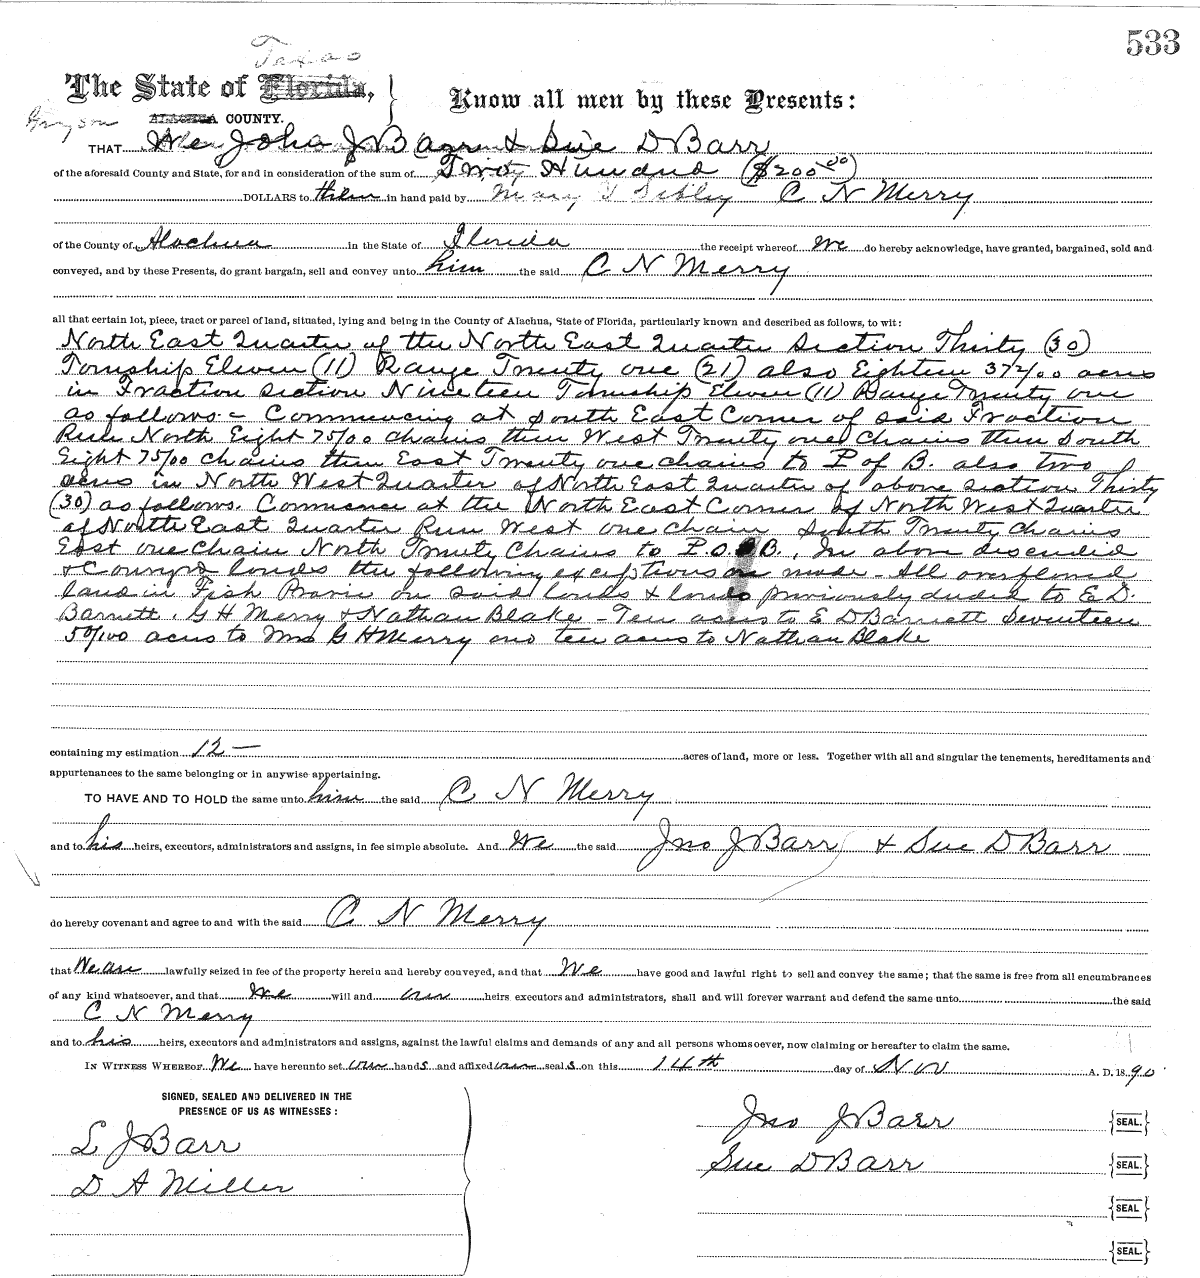 533
Texas
The State of Florida,
Know all men by these Presents:
Grayson ALACHUA COUNTY.
THAT We John J Barr & Sue D Barr
of the aforesaid County and State, for and in consideration of the sum of Two Hundred ($200.00)
DOLLARS to them in hand paid by Mary Sibley C N Merry
of the County of Alachua in the State of Florida the receipt whereof We do hereby acknowledge, have granted, bargained, sold and
conveyed, and by these Presents, do grant bargain, sell and convey unto him the said C N Merry
all that certain lot, piece, tract or parcel of land, situated, lying and being in the County of Alachua, State of Florida, particularly known and described as follows, to wit:
North East Quarter of the North East Quarter Section Thirty (30)
Township Eleven (11) Range Twenty one (21) also Eighteen 37½/00 acres
in Fraction section Nineteen Township Eleven (11) Range Twenty one
as follows:- Commencing at South East Corner of said Fraction
Run North Eight 75/00 chains then West Twenty one chains then South
Eight 75/00 chains then East Twenty one chains to P of B. also two
acres in North West Quarter of North East Quarter of above section Thirty
(30) as follows. Commence at the North East Corner of North West Quarter
of North East Quarter Run West one chain South Twenty Chains
East one Chain North Twenty Chains to P.O.B. In above described
& Conveyed lands the following exceptions made - All overflowed
land in Fish Prairie on said lands & lands previously deeded to E.D.
Barnett, G H Merry & Nathan Blake - Ten acres to E D Barnett Seventeen
50/100 acres to Mrs G H Merry and ten acres to Nathan Blake
containing my estimation 12 - acres of land, more or less. Together with all and singular the tenements, hereditaments and
appurtenances to the same belonging or in anywise appertaining.
TO HAVE AND TO HOLD the same unto him the said C N Merry
and to his heirs, executors, administrators and assigns, in fee simple absolute. And We the said Jno J Barr & Sue D Barr
do hereby covenant and agree to and with the said C N Merry
that We are lawfully seized in fee of the property herein and hereby conveyed, and that We have good and lawful right to sell and convey the same; that the same is free from all encumbrances
of any kind whatsoever, and that We will and our heirs executors and administrators, shall and will forever warrant and defend the same unto the said
C N Merry
and to his heirs, executors and administrators and assigns, against the lawful claims and demands of any and all persons whomsoever, now claiming or hereafter to claim the same.
IN WITNESS WHEREOF We have hereunto set our hands and affixed our seals on this 14th day of Nov A. D. 1890
SIGNED, SEALED AND DELIVERED IN THE
PRESENCE OF US AS WITNESSES:
L J Barr
D A Miller
Jno J Barr SEAL.
Sue D Barr SEAL.
SEAL
SEAL.